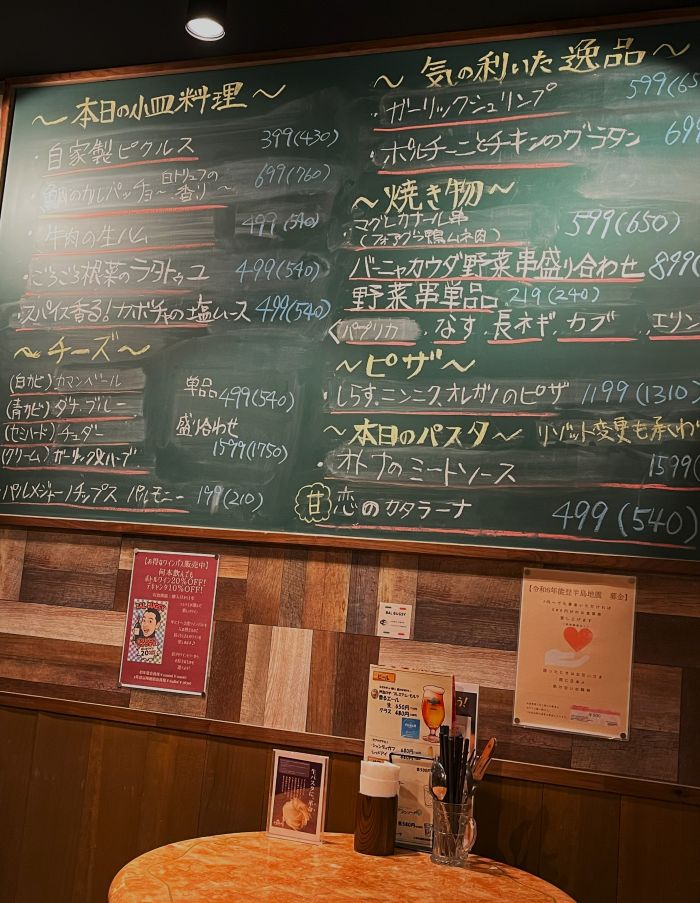 ～本日の小皿料理～
・自家製ピクルス 399(430)
・鯛のカルパッチョ～白トリュフの香り～ 699(760)
・牛肉の生ハム 499(540)
・ごろごろ根菜のラタトゥユ 499(540)
・スパイス香る！カボチャの塩ムース 499(540)
～チーズ～
(白カビ)カマンベール
(青カビ)ダナブルー
(セミハード)チェダー
(クリーム)ガーリック&ハーブ
単品 499(540)
盛り合わせ
1599(1750)
・パルメジャーノチップス パルモニー 199(210)
～気の利いた逸品～
・ガーリックシュリンプ 599(65
・ポルチーニとチキンのグラタン 699
～焼き物～
・マグレカナール串
(フォアグラ鴨ムネ肉) 599(650)
・バーニャカウダ野菜串盛り合わせ 899(
野菜串単品 219(240)
くパプリカ・なす・長ネギ・カブ・エリン
～ピザ～
・しらす、ニンニク、オレガノのピザ 1199(1310)
～本日のパスタ～ リゾット変更も承わ
・オトナのミートソース 1599(
甘 恋のカタラーナ 499(540)
【お得なワインパス販売中】
何本飲んでも
ボトルワイン20%OFF!
デキャンタ10%OFF!
【令和6年能登半島地震 募金】
ビール
生 650円
グラス 480円
生パスタに、